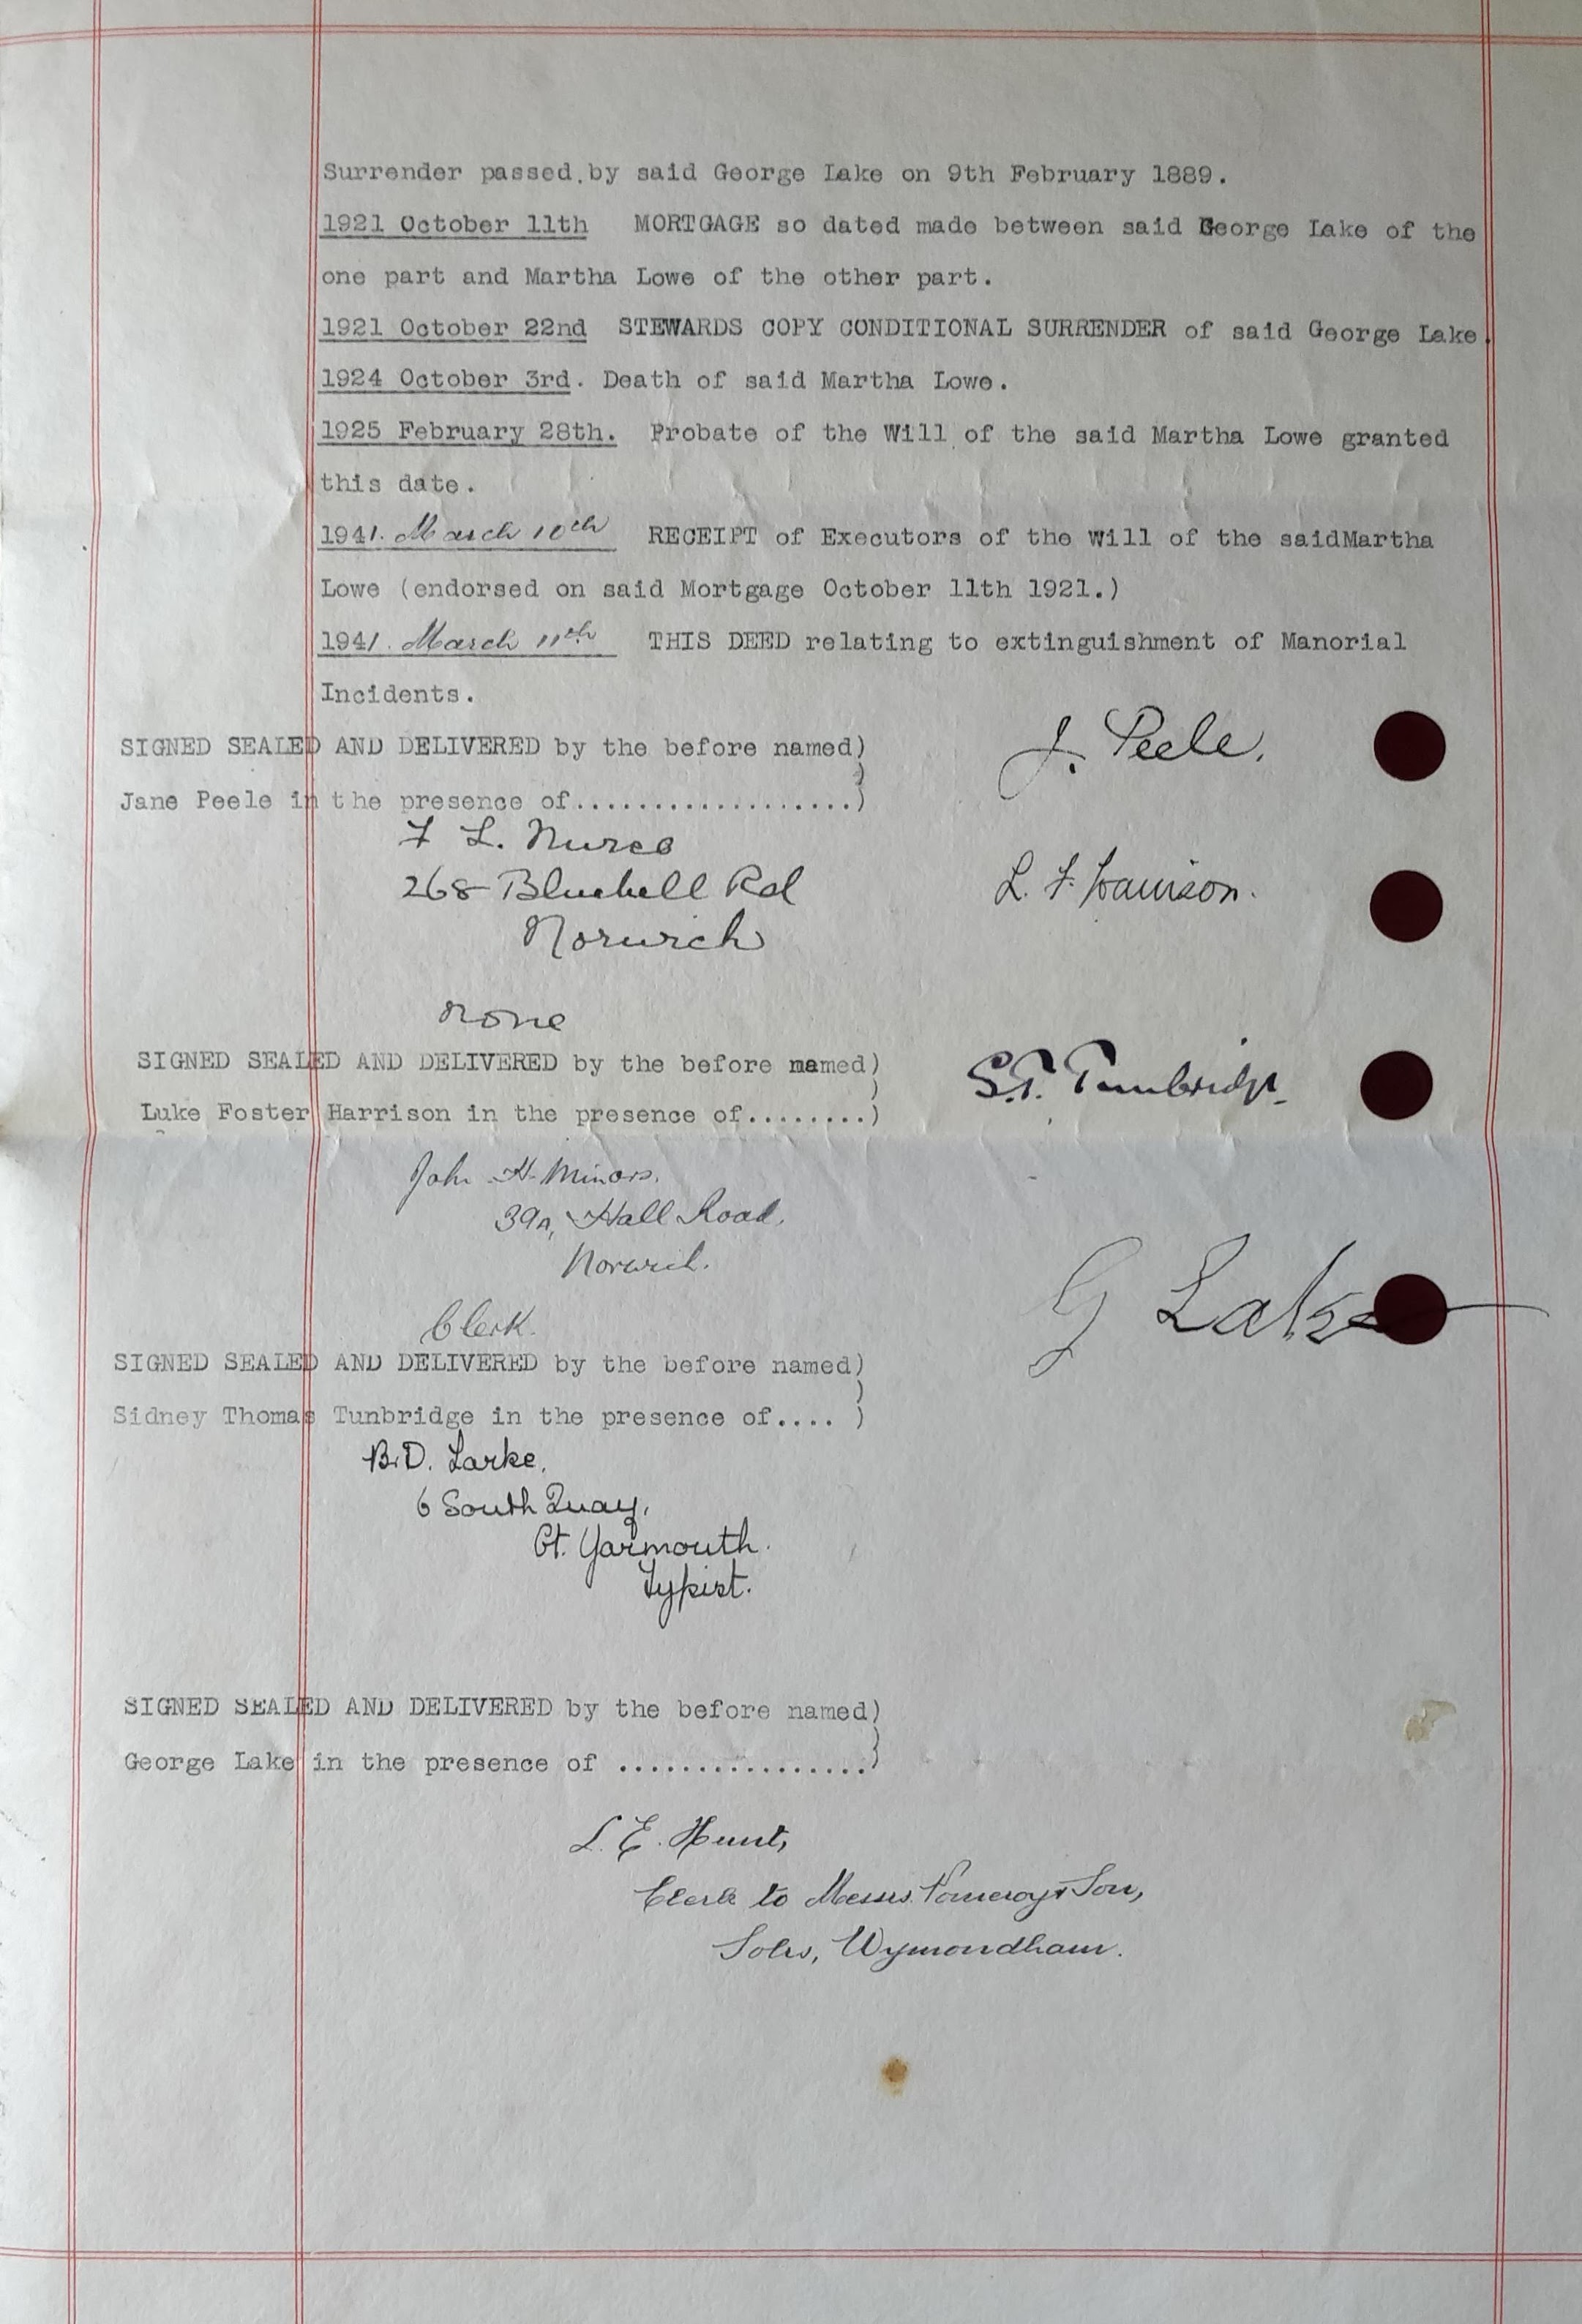 Surrender passed.by said George Lake on 9th February 1889.
1921 October 11th MORTGAGE so dated made between said George Lake of the
one part and Martha Lowe of the other part.
1921 October 22nd STEWARDS COPY CONDITIONAL SURRENDER of said George Lake.
1924 October 3rd. Death of said Martha Lowe.
1925 February 28th. Probate of the Will of the said Martha Lowe granted
this date.
1941. March 10th RECEIPT of Executors of the Will of the saidMartha
Lowe (endorsed on said Mortgage October 11th 1921.)
1941. March 11th THIS DEED relating to extinguishment of Manorial
Incidents.
SIGNED SEALED AND DELIVERED by the before named)
)
Jane Peele in the presence of..................)
J. Peele.
F L.
268 Bluebell Rd
Norwich
L. F. Harrison.
None
SIGNED SEALED AND DELIVERED by the before named)
)
Luke Foster Harrison in the presence of........)
S.T. Tunbridge
John H. Minors.
39A, Hall Road,
Norwich.
Clerk.
G Lake
SIGNED SEALED AND DELIVERED by the before named)
)
Sidney Thomas Tunbridge in the presence of.... )
B.D. Larke,
6 South Quay,
Gt. Yarmouth.
Typist.
SIGNED SEALED AND DELIVERED by the before named)
)
George Lake in the presence of ................)
L. E. Hunt,
Clerk to Messrs. Pomeroy & Son,
Solrs, Wymondham.